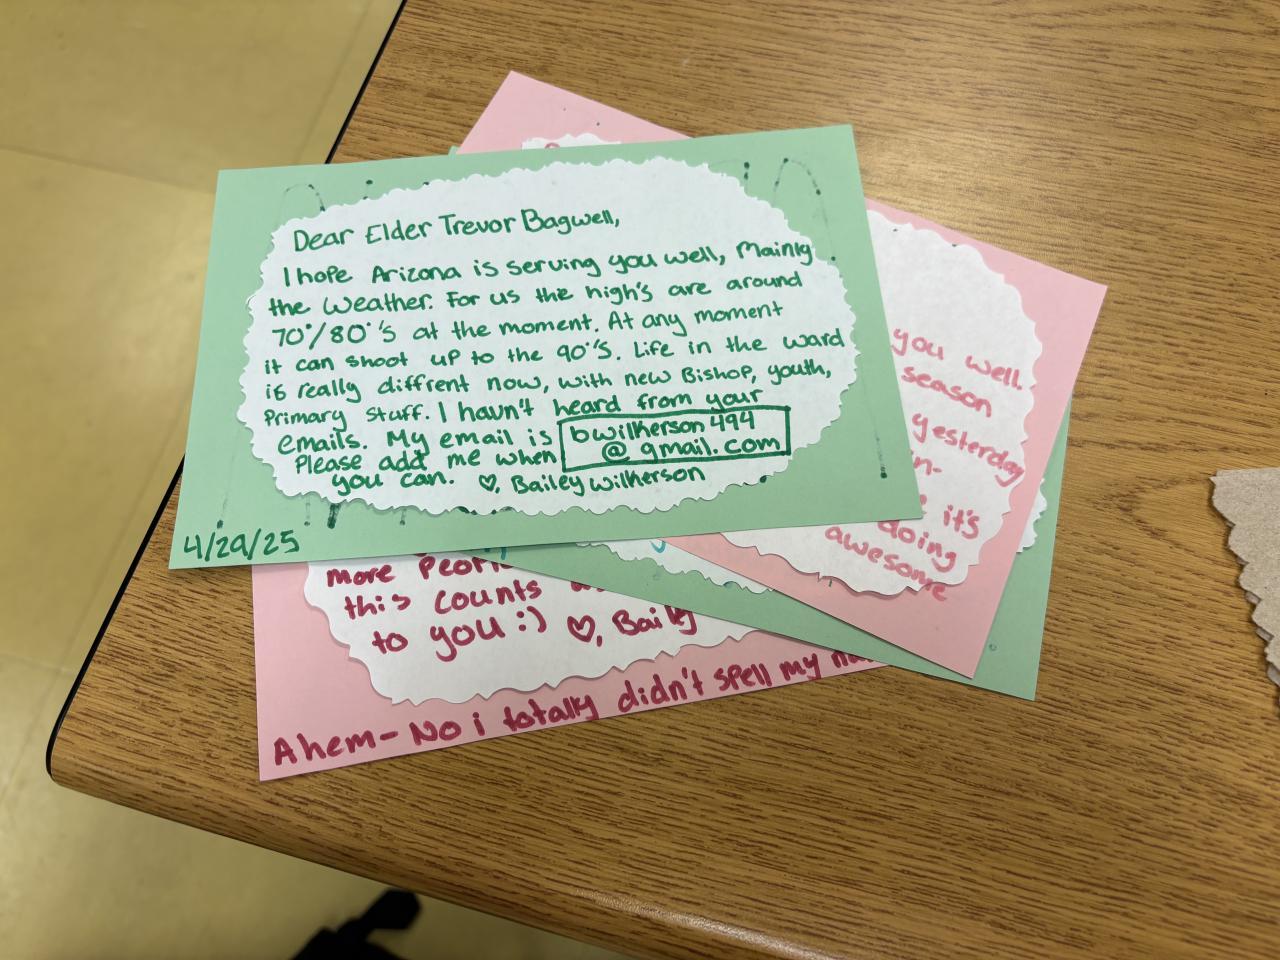 Dear Elder Trevor Bagwell,
I hope Arizona is serving you well, Mainly
the weather. For us the high's are around
70°/80°'s at the moment. At any moment
it can shoot up to the 90°'s. Life in the ward
is really diffrent now, with new Bishop, youth,
Primary stuff. I havn't heard from your
emails. My email is bwilkerson494
Please add me when @gmail.com
you can. ♡, Bailey Wilkerson
4/29/25
you well.
season
yesterday
in-
it's
doing
awesome
more
this counts
to you :) ♡, Baily
Ahem- No i totally didn't spell my